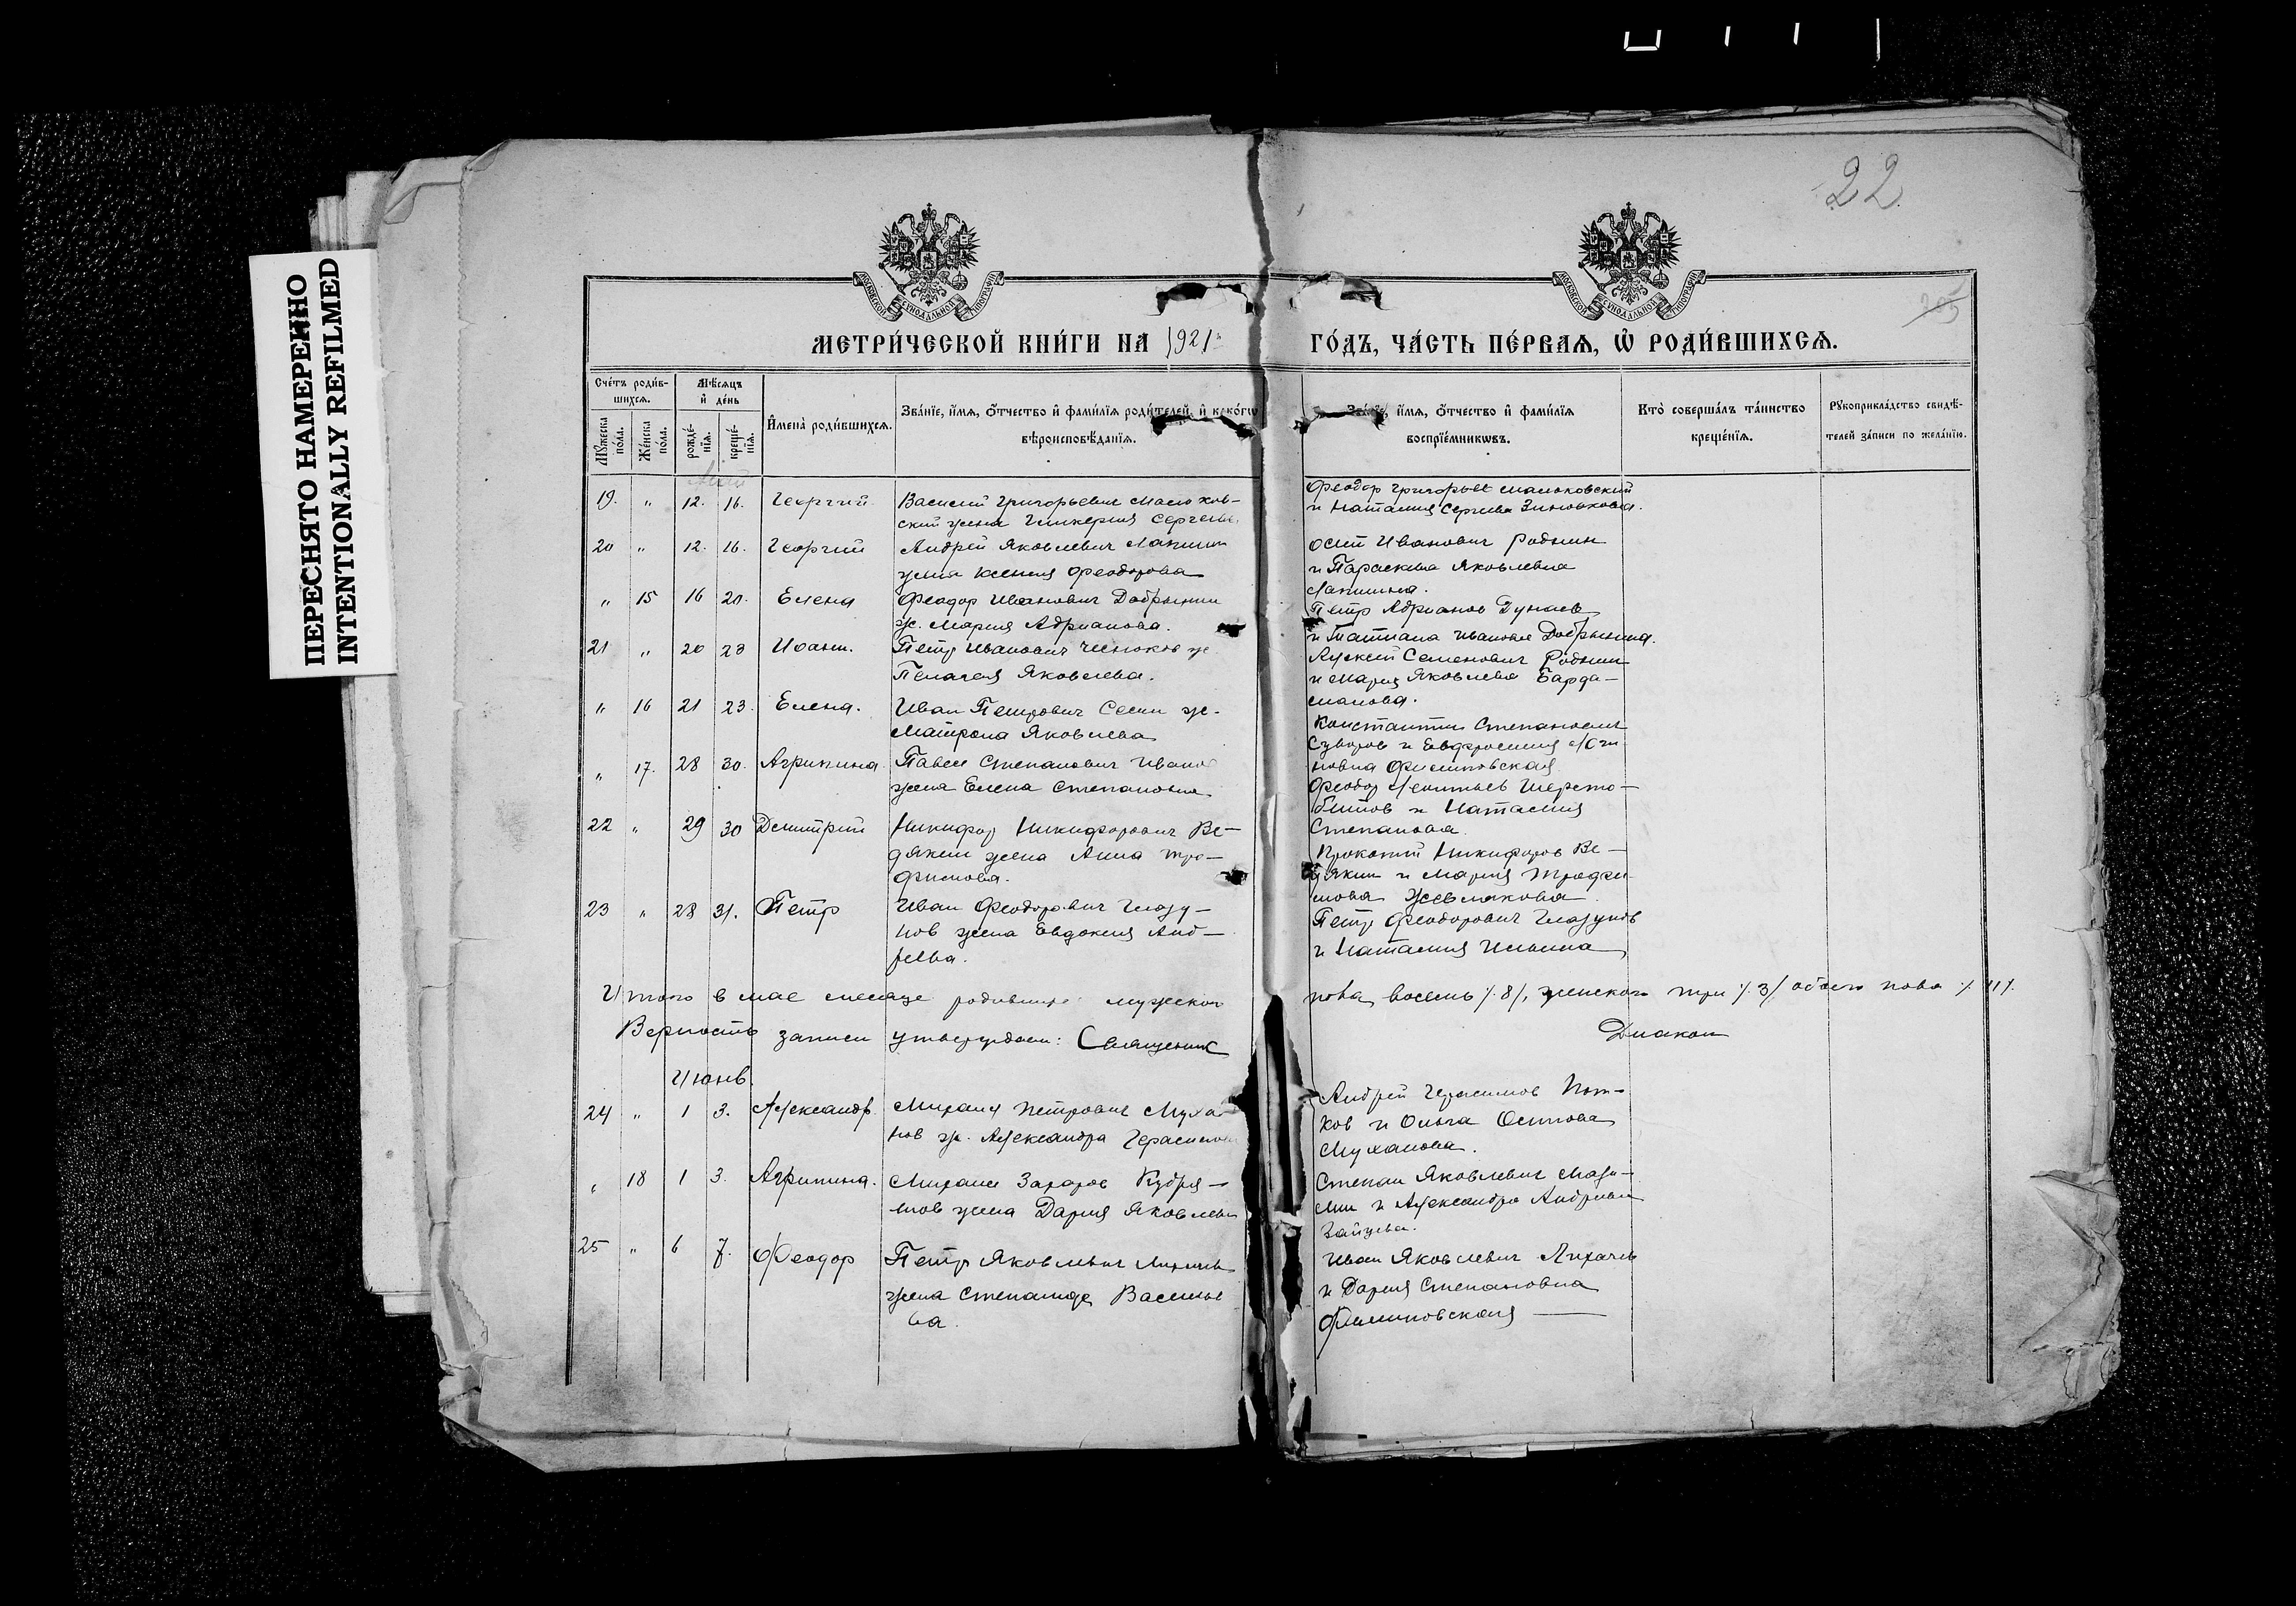 ПЕРЕСНЯТО НАМЕРЕННО
INTENTIONALLY REFILMED
22
МОСКОВСКОЙ СУНОДАЛЬНОЙ ТИПОГРАФІИ
МОСКОВСКОЙ СУНОДАЛЬНОЙ ТИПОГРАФІИ
МЕТРИ́ЧЕСКОЙ КНИ́ГИ НА 1921 ГО́ДЪ, ЧА́СТЬ ПЕ́РВАѦ, Ѡ҆ РОДИ́ВШИХСѦ.
Сче́тъ роди́в-
шихсѧ.
Мѣ́сѧцъ
и҆ де́нь
И҆мена̀ роди́вшихсѧ.
Зва́нїе, и҆́мѧ, ѻ҆́тчество и҆ фами́лїѧ роди́телей, и҆ како́гѡ
вѣроисповѣ́данїѧ.
Зва́нїе, и҆́мѧ, ѻ҆́тчество и҆ фами́лїѧ
воспрїе́мникѡвъ.
Кто̀ соверша́лъ та́инство
креще́нїѧ.
Рꙋкоприкла́дство свидѣ́-
телей за́писи по жела́нїю.
Мꙋ́жеска по́ла.
Же́нска по́ла.
рожде́-нїѧ.
креще́-нїѧ.
Май
19. " 12. 16. Георгий Василий Григорьевич Малюков-
ский жена Гликерия Сергеева
Феодор Григорьев Малюковский
и Наталия Сергеева Зиновкова.
20 " 12. 16. Георгий Андрей Яковлевич Лапшин
жена Ксения Феодорова
Осип Иванович Родннн
и Параскева Яковлевна
Лапшина.
" 15 16 20. Елена Феодор Иванович Добрынин
ж. Мария Адрианова.
Петр Адрианов Дунаев
и Татиана Иванова Добрынина.
21 " 20 23 Иоанн. Петр Иванович Чесноков ж
Пелагея Яковлева.
Алексей Семенович Роднин
и Мария Яковлева Барда-
манова.
" 16 21 23. Елена. Иван Петрович Семин ж.
Матрона Яковлева
Константин Степанович
Суворов и Евфросиния
Филиповская
" 17. 28 30. Агрипина Павел Степанович Иванов
жена Елена Степановна
Феодор Леонтьев Шерсто-
битов и Наталия
Степанова.
22 " 29 30 Димитрий Никифор Никифорович Ве-
дякин жена Анна Тро-
фимова.
Прокопий Никифоров Ве-
дякин и Мария Трофи-
мова Жевлакова
23 " 28 31. Петр Иван Феодорович Глазу-
нов жена Евдокия Анд-
реева.
Петр Феодорович Глазунов
и Наталия Ильина
Итого в мае месяце родившихся мужского пола восемь /8/, женского три /3/ обоего пола /11/.
Верность записи утверждаем: Священник Диакон
Июнь
24 " 1 3. Александр Михаил Петрович Муха-
нов ж. Александра Герасимова
Андрей Герасимов
и Ольга Осипова
Муханова.
" 18 1 3. Агрипина. Михаил Захаров Кудря-
шов жена Дария Яковлева
Степан Яковлевич
и Александра Андреева
Зайцева.
25 " 6 7. Феодор Петр Яковлевич Лихачев
жена Степанида Василье
ва.
Иван Яковлевич Лихачев
и Дария Степановна
Филиповская